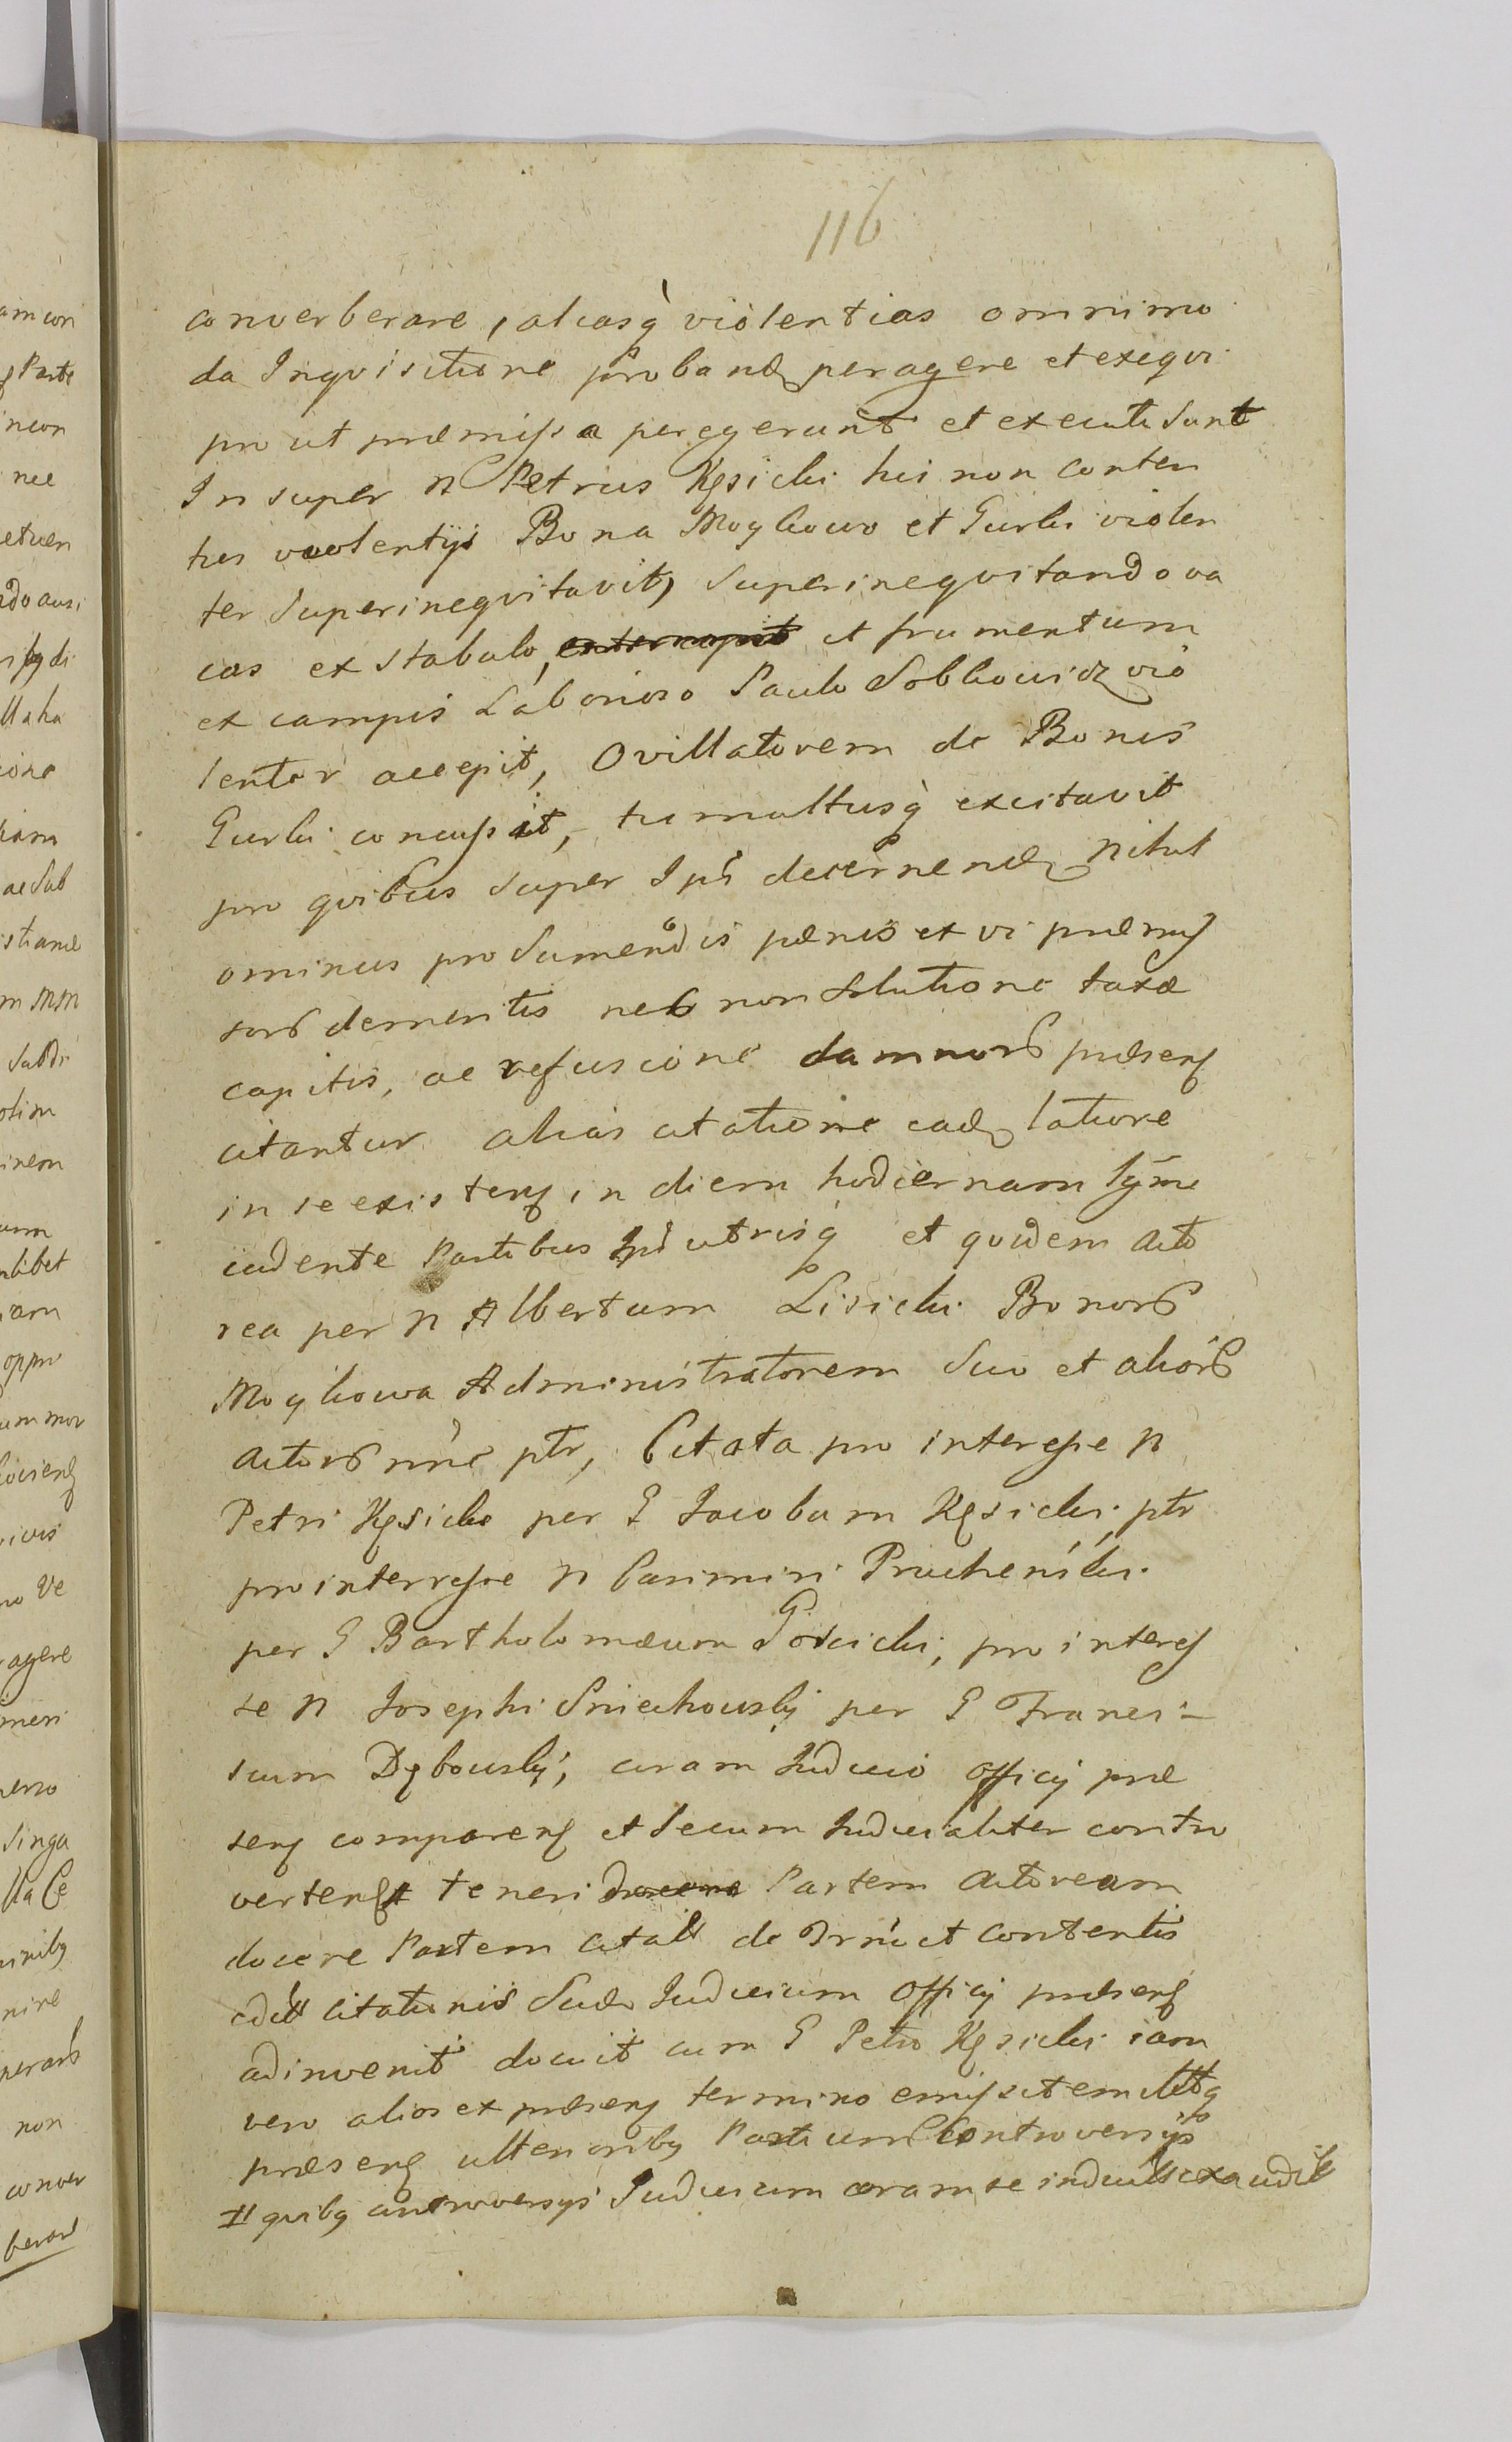 116
converberare, aliasq violentias omnimo
da Inqvisitione proband peragere et exeqvi
pro ut præmissa peregerunt et executi sunt
In super N Petrus Kęsicki his non conten
tus violentijs Bona Mogliowo et Gurki violen
ter superineqvitavit, superineqvitando va
cas ex stabulo, et frumentum
ex campis Laborioso Paulo Sobkowicz vio
lenter accepit, Ovillatorem de Bonis
Gurki concussit, tumultusq excitavit
pro qvibus super Ips decernend Nihil
ominus pro sumendis pænis ex vi præmis
sorƺ demeritis nec non solutione taxæ
capitis, ac refusione damnorƺ præsen
citantur alias citatione ead latiore
in se existen in diem hodiernam lgtme
cadente Partibus Ips utrisq et qvidem Acto
rea per N Albertum Lisicki Bonorƺ
Mogliowa Administratorem suo et aliorƺ
Actorƺ nne ptr, Citata pro interesse N
Petri Kęsicki per G Jacobum Kęsicki ptr
pro interresse N Casimiri Pruchenski
per G Bartholomæum Gościcki, pro interes
se N Josephi Sniechowski per G Franci-
scum Dębowski, coram Judicio Officij præ
sen comparen et secum Judicialiter contro
verten # teneri Partem Actoream
docere Partem Citat de Trno et contentis
citationis suæ Judicium Officij præsen
adinvenit docuit cum G Petro Kęsicki iam
vero alios ex præsen termino emisit
præsen ulteriorib Partium Controversijs
# qvib controversijs Judicium coram se induct exaudit